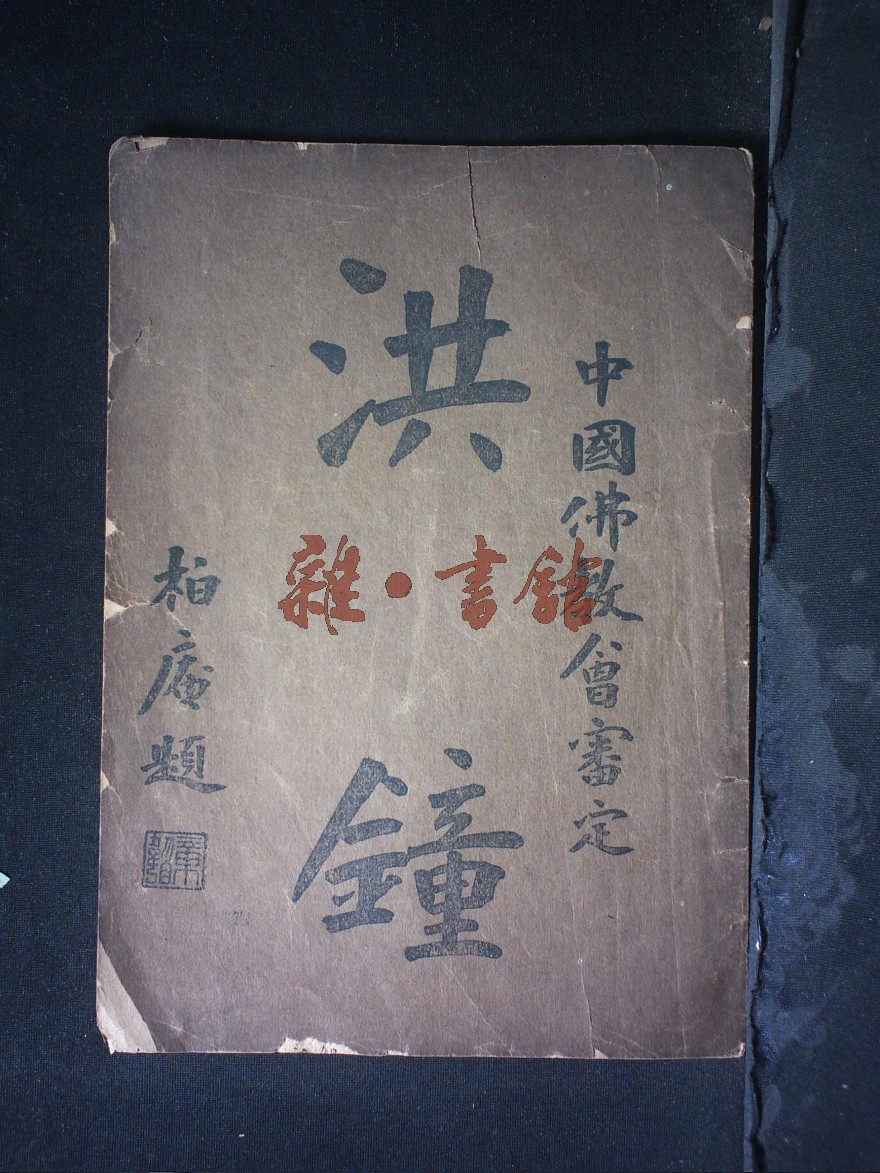 中國佛教會審定
洪鐘
柏庵題
雜·書館